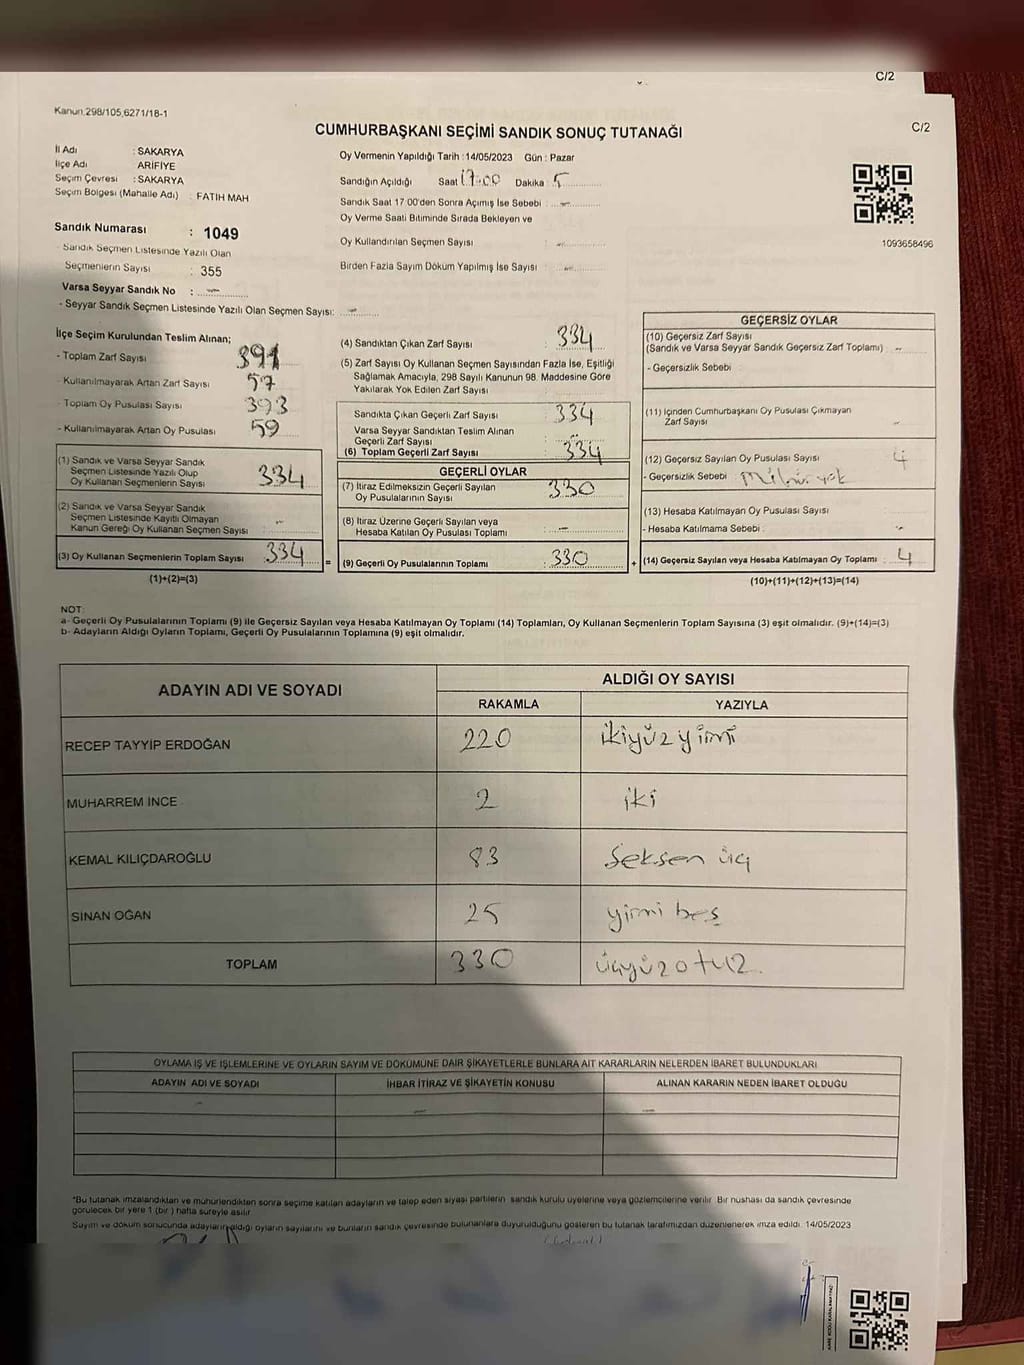 C/2
C/2
Kanun,298/105,6271/18-1
CUMHURBAŞKANI SEÇİMİ SANDIK SONUÇ TUTANAĞI
İl Adı : SAKARYA
İlçe Adı : ARİFİYE
Seçim Çevresi : SAKARYA
Seçim Bölgesi (Mahalle Adı) : FATİH MAH
Sandık Numarası : 1049
- Sandık Seçmen Listesinde Yazılı Olan
Seçmenlerin Sayısı : 355
Varsa Seyyar Sandık No : -
- Seyyar Sandık Seçmen Listesinde Yazılı Olan Seçmen Sayısı: -
Oy Vermenin Yapıldığı Tarih :14/05/2023 Gün : Pazar
Sandığın Açıldığı Saat 17:00 Dakika 5
Sandık Saat 17:00'den Sonra Açımış İse Sebebi : -
Oy Verme Saati Bitiminde Sırada Bekleyen ve
Oy Kullandırılan Seçmen Sayısı : -
Birden Fazla Sayım Döküm Yapılmış İse Sayısı : -
1093658496
İlçe Seçim Kurulundan Teslim Alınan;
- Toplam Zarf Sayısı 391
- Kullanılmayarak Artan Zarf Sayısı 57
- Toplam Oy Pusulası Sayısı 393
- Kullanılmayarak Artan Oy Pusulası 59
(1) Sandık ve Varsa Seyyar Sandık
Seçmen Listesinde Yazılı Olup
Oy Kullanan Seçmenlerin Sayısı 334
(2) Sandık ve Varsa Seyyar Sandık
Seçmen Listesinde Kayıtlı Olmayan
Kanun Gereği Oy Kullanan Seçmen Sayısı -
(3) Oy Kullanan Seçmenlerin Toplam Sayısı 334
(1)+(2)=(3)
(4) Sandıktan Çıkan Zarf Sayısı : 334
(5) Zarf Sayısı Oy Kullanan Seçmen Sayısından Fazla İse, Eşitliği
Sağlamak Amacıyla, 298 Sayılı Kanunun 98. Maddesine Göre
Yakılarak Yok Edilen Zarf Sayısı
Sandıkta Çıkan Geçerli Zarf Sayısı : 334
Varsa Seyyar Sandıktan Teslim Alınan
Geçerli Zarf Sayısı : -
(6) Toplam Geçerli Zarf Sayısı : 334
GEÇERLİ OYLAR
(7) İtiraz Edilmeksizin Geçerli Sayılan
Oy Pusulalarının Sayısı 330
(8) İtiraz Üzerine Geçerli Sayılan veya
Hesaba Katılan Oy Pusulası Toplamı : -
= (9) Geçerli Oy Pusulalarının Toplamı : 330
GEÇERSİZ OYLAR
(10) Geçersiz Zarf Sayısı
(Sandık ve Varsa Seyyar Sandık Geçersiz Zarf Toplamı) -
- Geçersizlik Sebebi
(11) İçinden Cumhurbaşkanı Oy Pusulası Çıkmayan
Zarf Sayısı -
(12) Geçersiz Sayılan Oy Pusulası Sayısı 4
- Geçersizlik Sebebi Mühür yok
(13) Hesaba Katılmayan Oy Pusulası Sayısı
- Hesaba Katılmama Sebebi : -
+ (14) Geçersiz Sayılan veya Hesaba Katılmayan Oy Toplamı : 4
(10)+(11)+(12)+(13)=(14)
NOT:
a- Geçerli Oy Pusulalarının Toplamı (9) ile Geçersiz Sayılan veya Hesaba Katılmayan Oy Toplamı (14) Toplamları, Oy Kullanan Seçmenlerin Toplam Sayısına (3) eşit olmalıdır. (9)+(14)=(3)
b- Adayların Aldığı Oyların Toplamı, Geçerli Oy Pusulalarının Toplamına (9) eşit olmalıdır.
ADAYIN ADI VE SOYADI ALDIĞI OY SAYISI
RAKAMLA YAZIYLA
RECEP TAYYİP ERDOĞAN 220 ikiyüzyirmi
MUHARREM İNCE 2 iki
KEMAL KILIÇDAROĞLU 83 Seksen üç
SİNAN OĞAN 25 yirmi beş
TOPLAM 330 üçyüzotuz
OYLAMA İŞ VE İŞLEMLERİNE VE OYLARIN SAYIM VE DÖKÜMÜNE DAİR ŞİKAYETLERLE BUNLARA AİT KARARLARIN NELERDEN İBARET BULUNDUKLARI
ADAYIN ADI VE SOYADI İHBAR İTİRAZ VE ŞİKAYETİN KONUSU ALINAN KARARIN NEDEN İBARET OLDUĞU
- - -
*Bu tutanak imzalandıktan ve mühürlendikten sonra seçime katılan adayların ve talep eden siyasi partilerin sandık kurulu üyelerine veya gözlemcilerine verilir. Bir nüshası da sandık çevresinde
görülecek bir yere 1 (bir) hafta süreyle asılır.
Sayım ve döküm sonucunda adayların aldığı oyların sayılarını ve bunların sandık çevresinde bulunanlara duyurulduğunu gösteren bu tutanak tarafımızdan düzenlenerek imza edildi. 14/05/2023